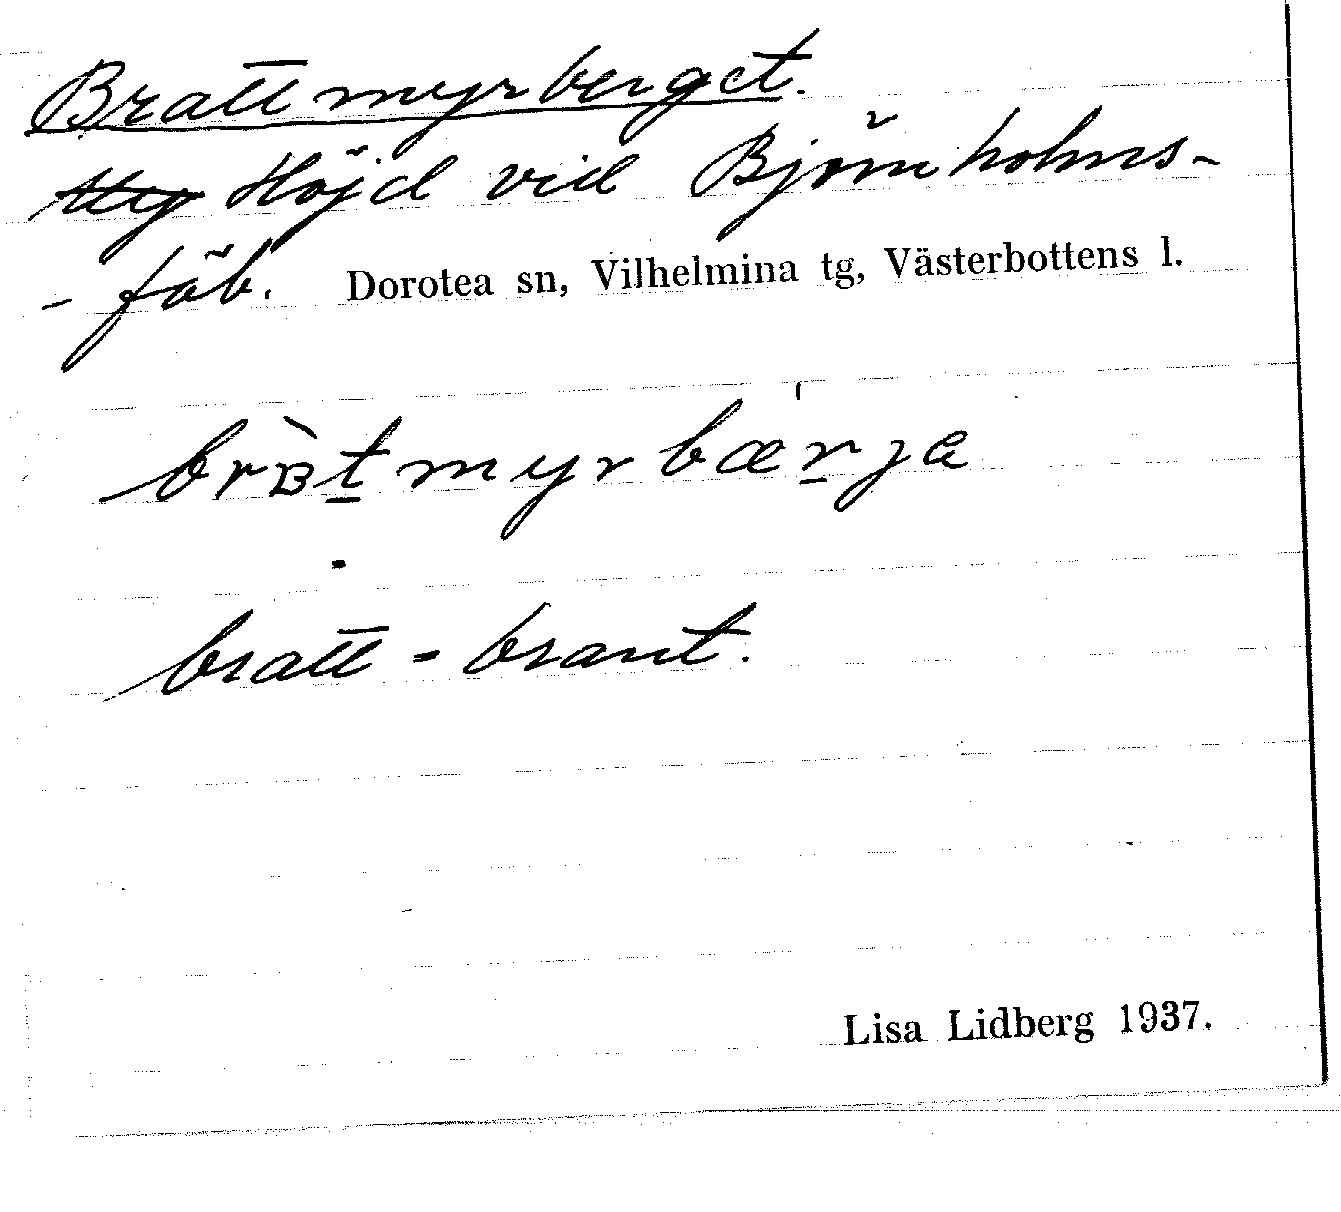 Brattmyrberget.
Höjd vid Björnholms-
- fäb. Dorotea sn, Vilhelmina tg, Västerbottens l.
brʙ̀t̲myrbær̲ja
bratt = brant.
Lisa Lidberg 1937.